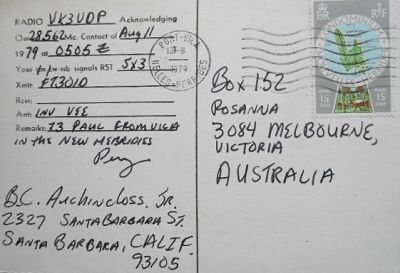 RADIO VK3VDP Acknowledging
Our 28562 Mc. Contact of Aug 11
1979 at 0505 Z
Your signals RST 5x3
Xmtr FT301D
Rcvr:
Ant: INV VEE
Remarks: 73 PAUL FROM VILA
IN THE NEW HEBRIDIES
B.C. Auchincloss. Jr.
2327 SANTA BARBARA ST.
SANTA BARBARA, CALIF.
93105
PORT-VILA
1979
NELLES-HEBRIDES
CONDOMINIUM
15
15
Box 152
ROSANNA
3084 MELBOURNE,
VICTORIA
AUSTRALIA